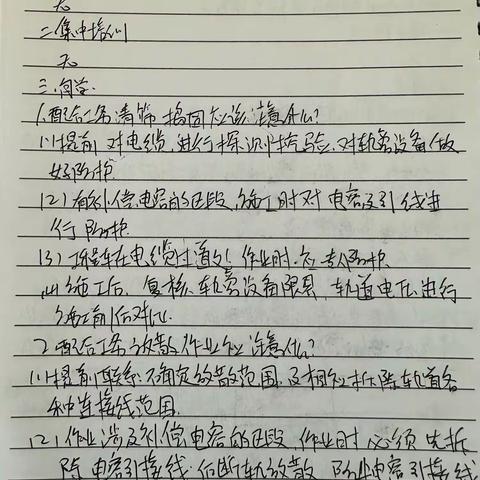 无
二、集中培训
无
三、自学.
1.配合工务清筛 捣固应该注意什么?
(1)提前对电缆进行探测试验.对轨旁设备做
好防护
(2)有补偿电容的区段,施工时对电容及引线进
行防护.
(3)工程车在电缆过道处作业时.应专人防护.
(4)施工后,复核轨旁设备限界,轨道电压进行
施工前后对比.
2.配合工务放散作业应注意什么?
(1)提前联系 确定放散范围及相应拆除轨道各
种连接线范围.
(2)作业涉及补偿电容的区段,作业时必须先拆
除电容引接线.后断轨放散 防止电容引接线